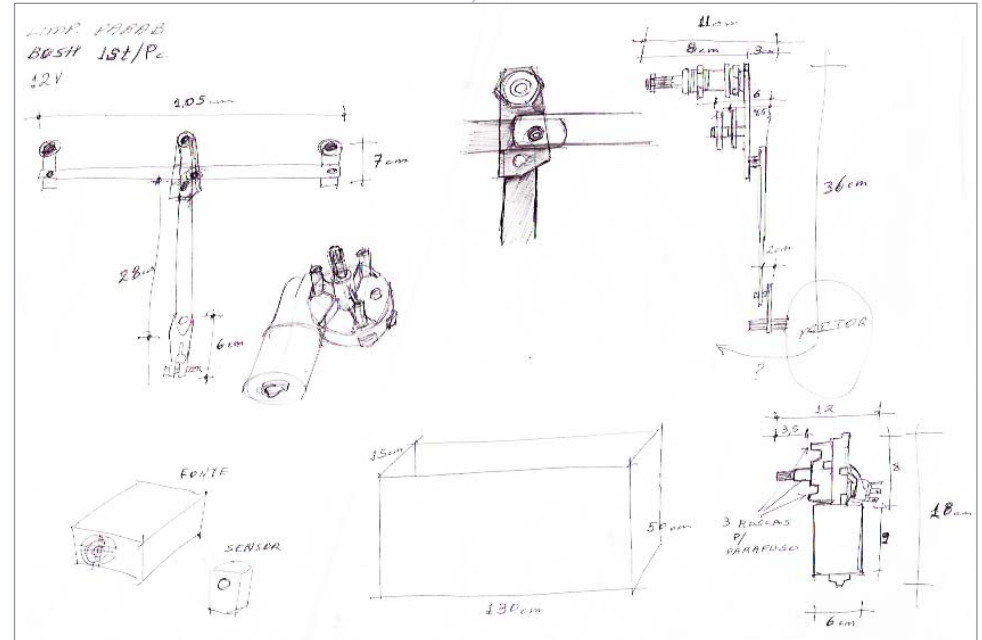 LIMP. PARAB
BOSH 1St/Pc
12V
1,05 cm
7 cm
28cm
6 cm
11cm
8cm
3cm
6
36cm
2cm
MOTOR
?
FONTE
SENSOR
15cm
50cm
130cm
12
3,5
8
3 ROSCAS
P/
PARAFUSO
9
18cm
6cm